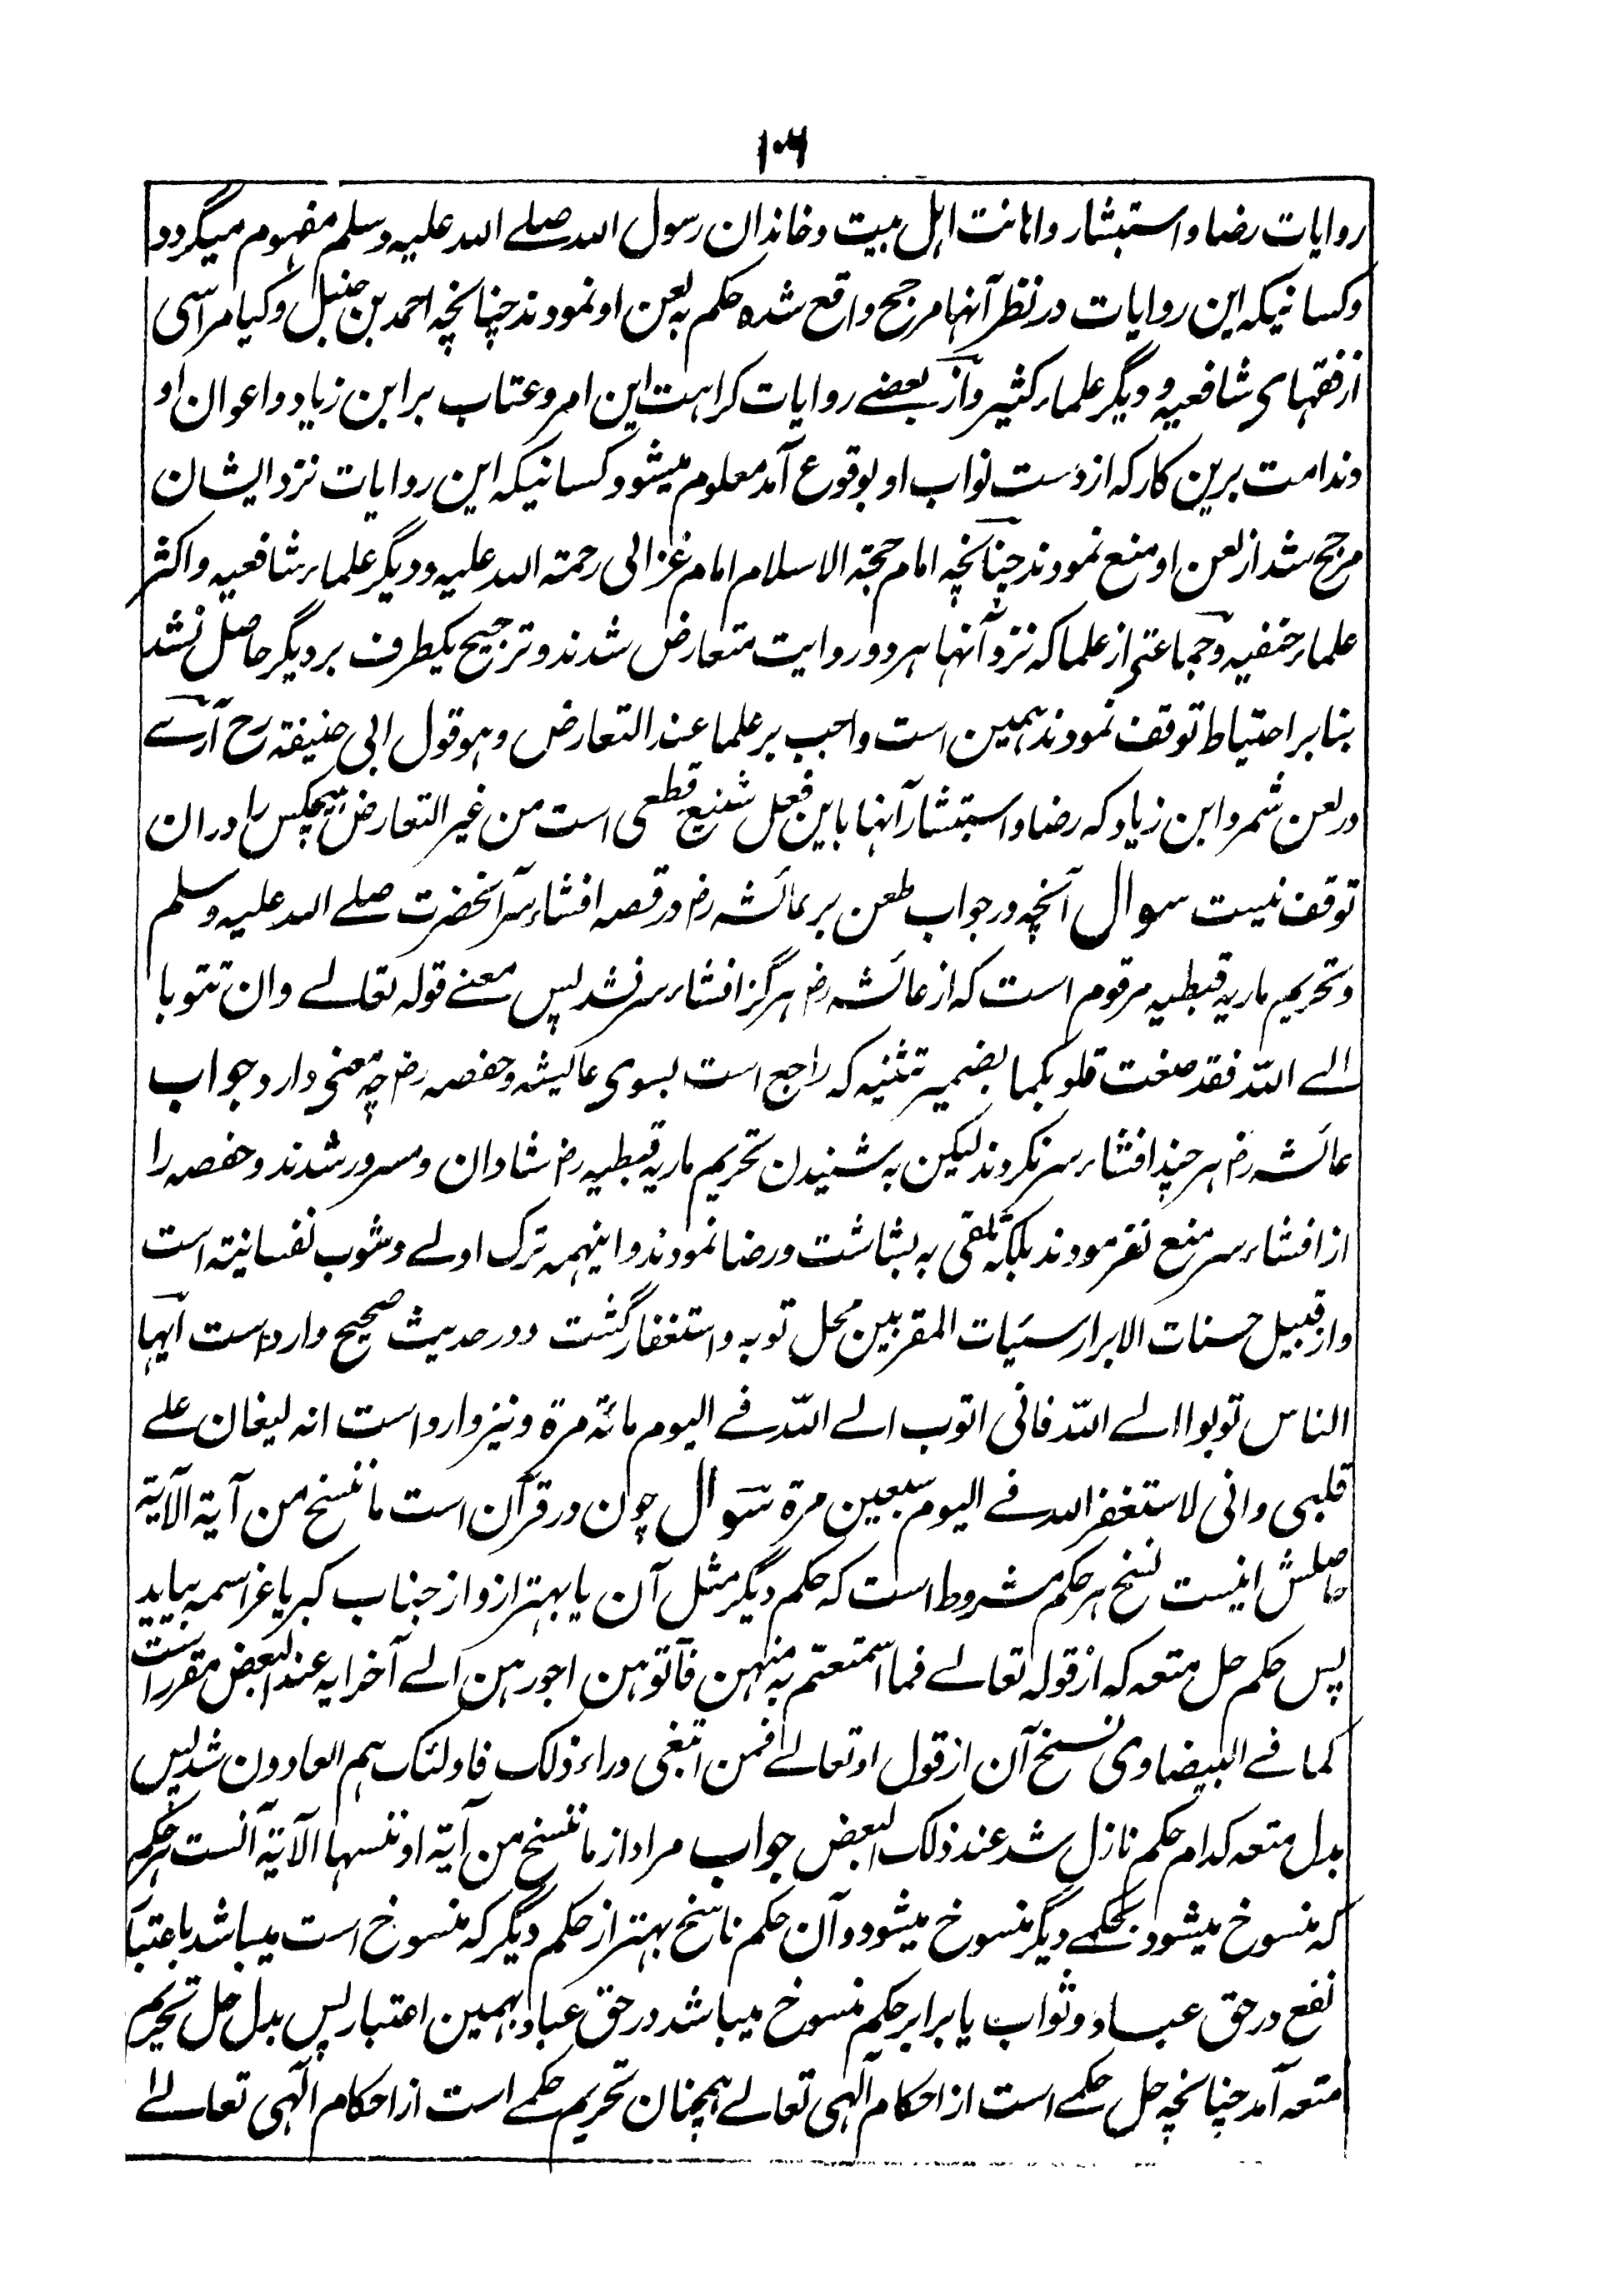 ۱۰۶
روایات رضا و استبشار و اہانت اہل بیت و خاندان رسول اللہ صلے اللہ علیہ وسلم مفہوم میگردد
وکسانیکہ این روایات در نظر آنہا مرجح واقع شدہ حکم بہ لعن او نمودند چنانچہ احمد بن حنبل و کیا ہراسی
از فقہای شافعیہ و دیگر علماء کثیر و از بعضے روایات کراہت این امر و عتاب بر ابن زیاد و اعوان او
و ندامت برین کار کہ از دست نواب او بوقوع آمد معلوم میشود کسانیکہ این روایات نزد ایشان
مرجح شد از لعن او منع نمودند چنانچہ امام حجتہ الاسلام امام غزالی رحمتہ اللہ علیہ و دیگر علماء شافعیہ و اکثر
علماء حنفیہ و جماعتی از علما کہ نزد آنہا ہر دو روایت متعارض شدند و ترجیح یکطرف بر دیگر حاصل نشد
بنا بر احتیاط توقف نمودند ہمین است واجب بر علما عند التعارض و ہو قول ابی حنیفۃ رح آرے
در لعن شمر و ابن زیاد کہ رضا و استبشار آنہا باین فعل شنیع قطعی است من غیر التعارض ہیچکس را دران
توقف نیست سوال آنچہ در جواب طعن بر عائشہ رض در قصہ افشاء سر آنحضرت صلے اللہ علیہ وسلم
و تحریم ماریہ قبطیہ مرقوم است کہ از عائشہ رض ہرگز افشاء سر نشد پس معنے قولہ تعالے وان تتوبا
الے اللّہ فقد صغت قلوبکما بضمیر تثنیہ کہ راجع است بسوی عایشہ و حفصہ رض چہ معنی دارد جواب
عائشہ رض ہر چند افشاء سر نکردند لیکن بہ شنیدن تحریم ماریہ قبطیہ رض شادان و مسرور شدند و حفصہ را
از افشاء سر منع نفرمودند بلکہ تلقی بہ بشاشت و رضا نمودند و اینہمہ ترک اولے و شوب نفسانیتہ است
و از قبیل حسنات الابرار سیئات المقربین محل توبہ و استغفار گشت و در حدیث صحیح وارد است ایہا
الناس توبوا الے اللّہ فانی اتوب الے اللّہ فے الیوم مائۃ مرۃ و نیز وارد است انہ لیغان علے
قلبی وانی لاستغفر اللہ فے الیوم سبعین مرۃ سوال چون در قرآن است ما ننسخ من آیۃ الآیۃ
حاصلش اینست نسخ ہر حکم مشروط است کہ حکم دیگر مثل آن یا بہتر ازو از جناب کبریا عز اسمہ بیاید
پس حکم حل متعہ کہ از قولہ تعالے فما استمتعتم بہ منہن فآتوہن اجورہن الے آخر ایہ عند البعض مقرر است
کما فے البیضاوی نسخ آن از قول او تعالے فمن ابتغی وراء ذلک فاولئک ہم العادون شد پس
بدل متعہ کدام حکم نازل شد عند ذلک البعض جواب مراد از ما ننسخ من آیۃ او ننسہا الآیۃ آنست ہر حکم
کہ منسوخ میشود بحکمے دیگر منسوخ میشود و آن حکم ناسخ بہتر از حکم دیگر کہ منسوخ است میباشد باعتبا
نفع در حق عباد و ثواب یا برابر حکم منسوخ میباشد در حق عباد بہمین اعتبار پس بدل حل تحریم
متعہ آمد چنانچہ حل حکمے است از احکام آلہی تعالے ہمچنان تحریم حکمے است از احکام آلہی تعالے